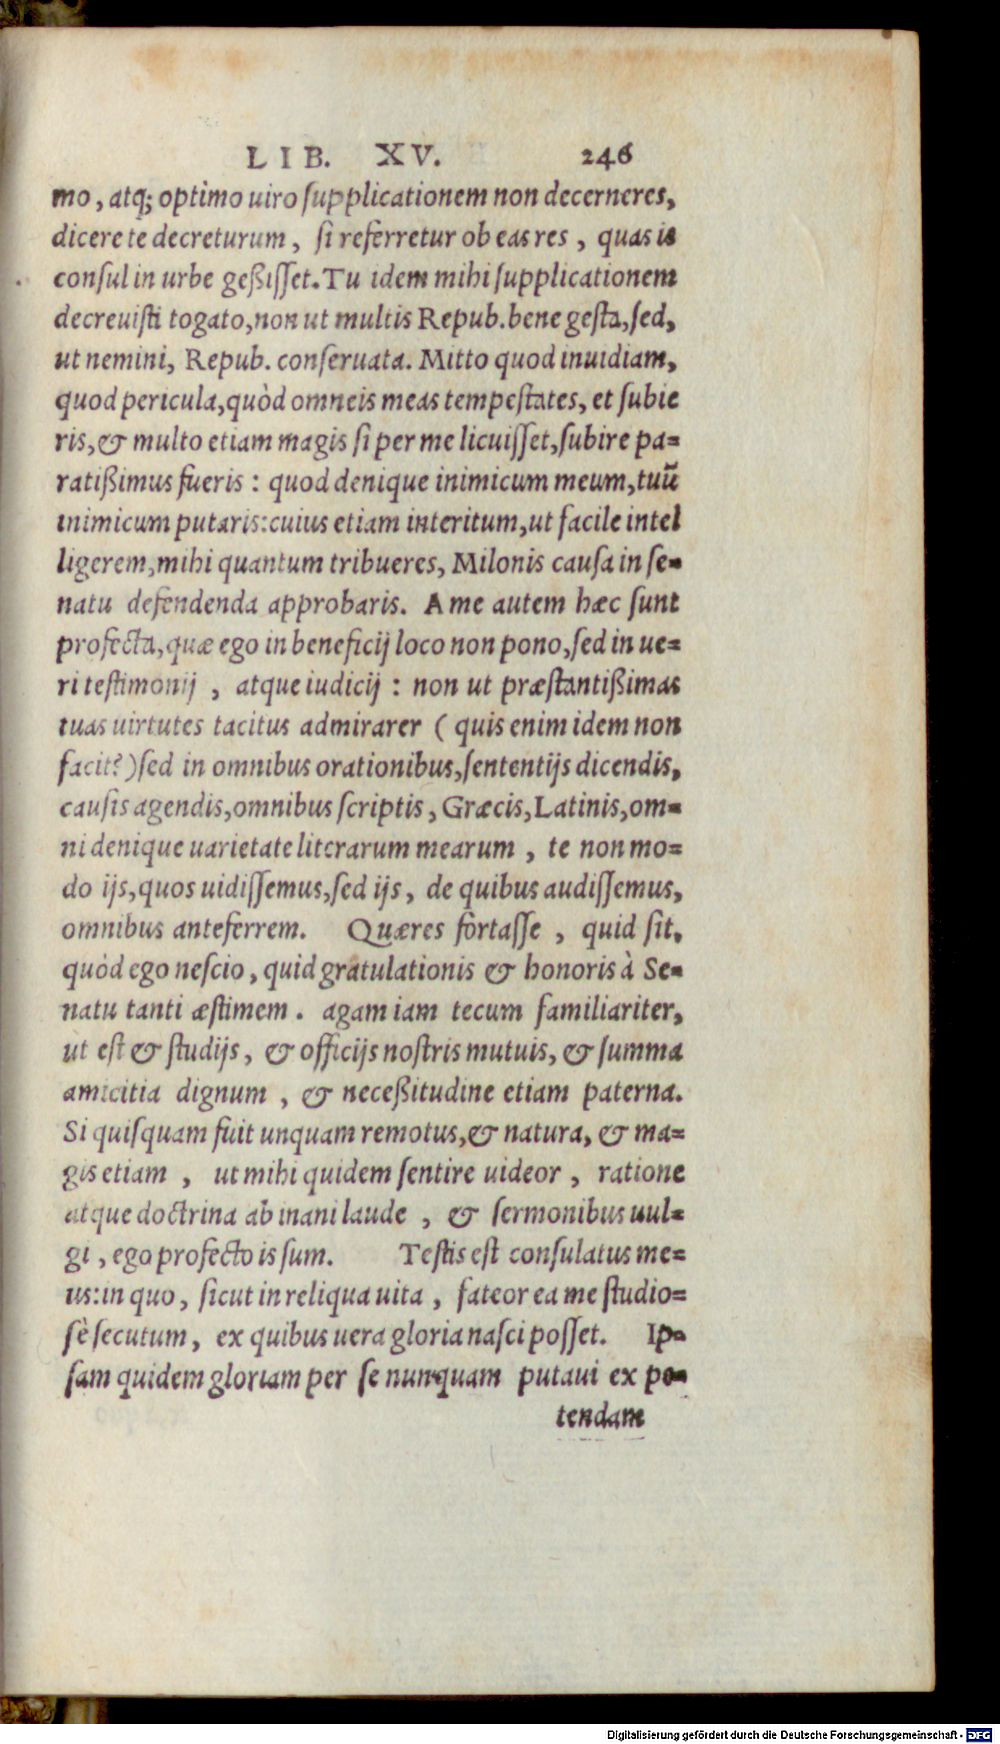 LIB. XV. 246
mo, atq; optimo uiro ſupplicationem non decerneres,
dicere te decreturum, ſi referretur ob eas res, quas is
conſul in urbe geßiſſet. Tu idem mihi ſupplicationem
decreuiſti togato, non ut multis Repub. bene geſta, ſed,
ut nemini, Repub. conſeruata. Mitto quod inuidiam,
quod pericula, quòd omneis meas tempeſtates, et ſubie
ris, & multo etiam magis ſi per me licuiſſet, ſubire pa=
ratißimus fueris: quod denique inimicum meum, tuũ
inimicum putaris: cuius etiam interitum, ut facile intel
ligerem, mihi quantum tribueres, Milonis cauſa in ſe=
natu defendenda approbaris. A me autem hæc ſunt
profecta, quæ ego in beneficij loco non pono, ſed in ue=
ri teſtimonij, atque iudicij: non ut præſtantißimas
tuas uirtutes tacitus admirarer (quis enim idem non
facit?) ſed in omnibus orationibus, ſententijs dicendis,
cauſis agendis, omnibus ſcriptis, Græcis, Latinis, om=
ni denique uarietate literarum mearum, te non mo=
do ijs, quos uidiſſemus, ſed ijs, de quibus audiſſemus,
omnibus anteferrem. Quæres fortaſſe, quid ſit,
quòd ego neſcio, quid gratulationis & honoris à Se=
natu tanti æſtimem. agam iam tecum familiariter,
ut eſt & ſtudijs, & officijs noſtris mutuis, & ſumma
amicitia dignum, & neceßitudine etiam paterna.
Si quiſquam fuit unquam remotus, & natura, & ma=
gis etiam, ut mihi quidem ſentire uideor, ratione
atque doctrina ab inani laude, & ſermonibus uul=
gi, ego profecto is ſum. Teſtis eſt conſulatus me=
us: in quo, ſicut in reliqua uita, fateor ea me ſtudio=
ſè ſecutum, ex quibus uera gloria naſci poſſet. Ip=
ſam quidem gloriam per ſe nunquam putaui ex pe=
tendam
Digitalisierung gefördert durch die Deutsche Forschungsgemeinschaft - DFG